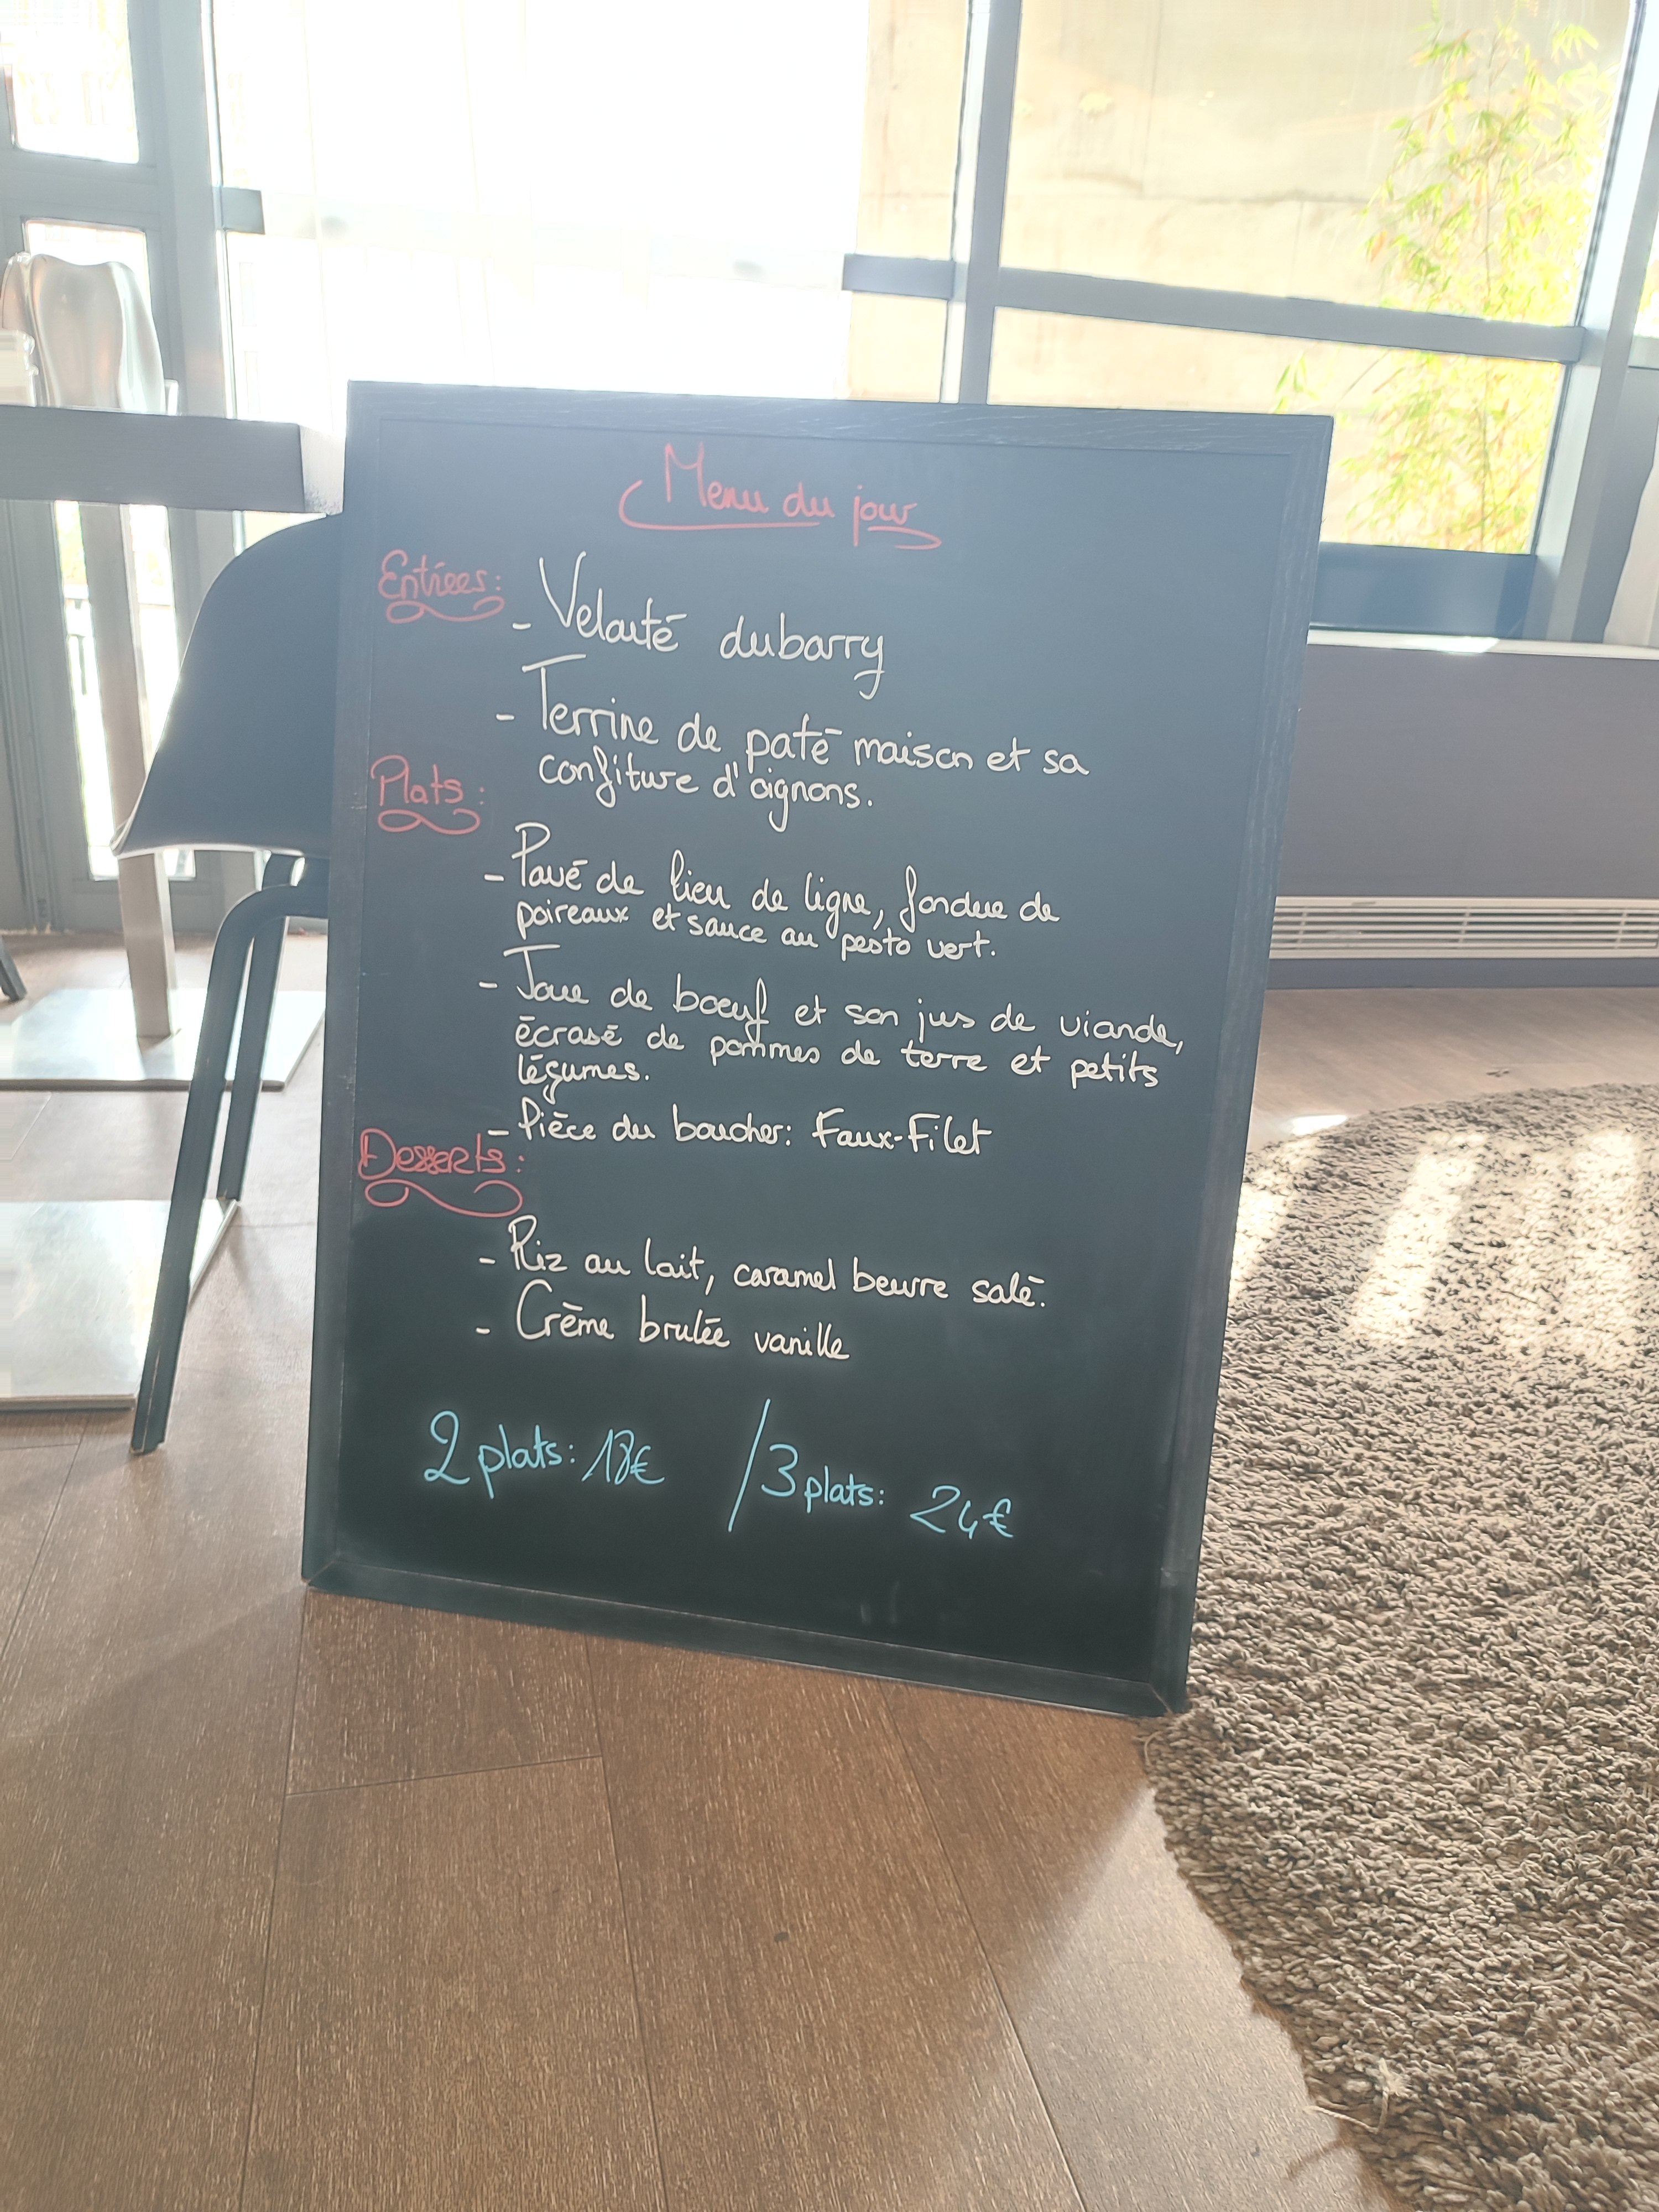 Menu du jour
Entrées:
- Velouté dubarry
- Terrine de paté maison et sa
confiture d'oignons.
Plats:
- Pavé de lieu de ligne, fondue de
poireaux et sauce au pesto vert.
- Joue de boeuf et son jus de viande,
écrasé de pommes de terre et petits
légumes.
- Pièce du boucher: Faux-Filet
Desserts:
- Riz au lait, caramel beurre salé.
- Crème brulée vanille
2 plats: 18€ / 3 plats: 24€